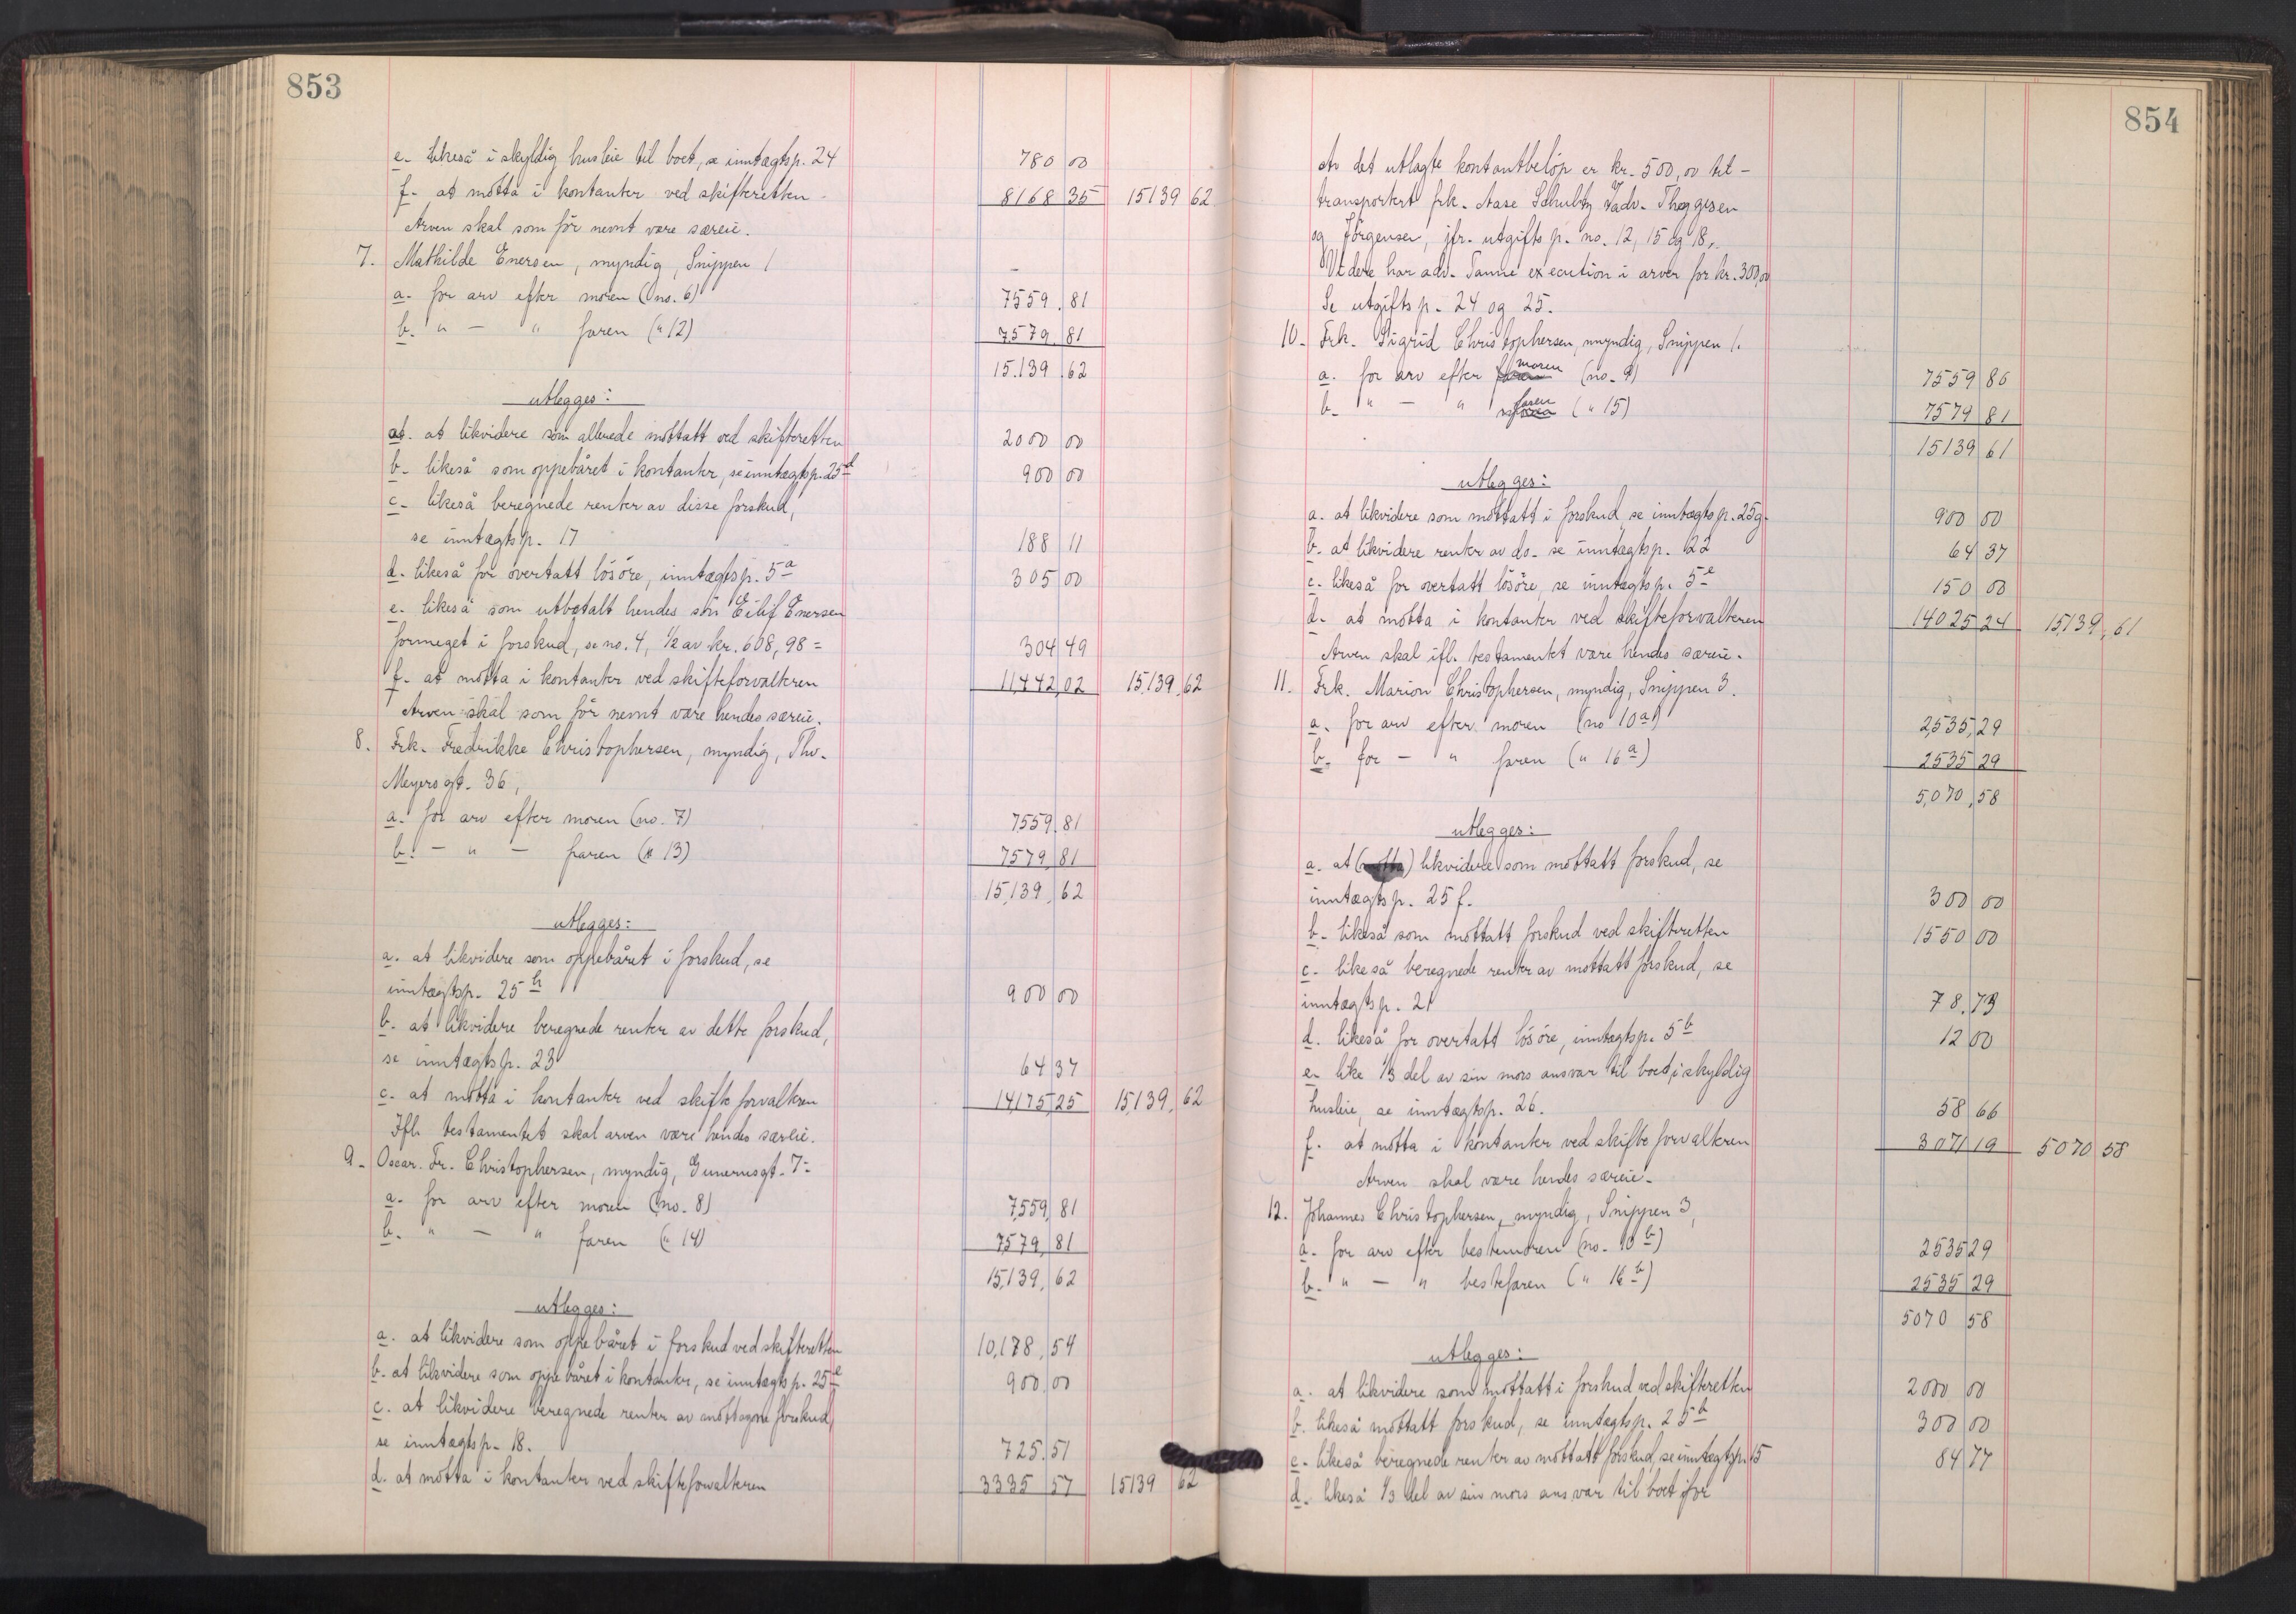 853
e. likeså i skyldig husleie til boet, se inntægtsp. 24 780 00
f. at motta i kontanter ved skifteretten 8168 35 15139 62
Arven skal som før nevnt være særeie.
7. Mathilde Enersen, myndig, Snippen 1
a. for arv efter moren (no. 6) 7559.81
b. " — " faren (" 12) 7579.81
15.139.62
utlegges:
a. at likvidere som allerede mottatt ved skifteretten 2000 00
b. likeså som oppebåret i kontanter, se inntægtsp. 25 d 900 00
c. likeså beregnede renter av disse forskud,
se inntægtsp. 17 188 11
d. likeså for overtatt løsøre, inntægtsp. 5 a 305 00
e. likeså som utbetalt hendes søn Eilif Enersen
formeget i forskud, se no. 4, 1/2 av kr. 608,98 = 304 49
f. at motta i kontanter ved skifteforvalteren 11,442,02 15,139,62
Arven skal som før nevnt være hendes særeie.
8. Frk. Fredrikke Christophersen, myndig, Thv.
Meyersgt. 36,
a. for arv efter moren (no. 7) 7559.81
b. — " — faren (" 13) 7579,81
15,139,62
utlegges:
a. at likvidere som oppebåret i forskud, se
inntægtsp. 25 h 900 00
b. at likvidere beregnede renter av dette forskud,
se inntægtsp. 23 64 37
c. at motta i kontanter ved skifteforvalteren 14,175,25 15,139,62
Ifl. testamentet skal arven være hendes særeie.
9. Oscar. Fr. Christophersen, myndig, Gunerusgt. 7-
a. for arv efter moren (no. 8) 7,559,81
b. " — " faren (" 14) 7579,81
15,139,62
utlegges:
a. at likvidere som oppebåret i forskud ved skifteretten 10,178,54
b. at likvidere som oppebåret i kontanter, se inntægtsp. 25 e 900.00
c. at likvidere beregnede renter av mottagne forskud,
se inntægtsp. 18. 725.51
d. at motta i kontanter ved skifteforvalteren 3335 57 15139 62
854
Av det utlagte kontantbeløp er kr. 500,00 til-
transportert frk. Aase Schultz adv. Thoggesen
og Jørgensen, jfr. utgiftsp. no. 12, 15 og 18,
Videre har adv. execution i arven for kr. 300,00
Se utgiftsp. 24 og 25.
10. Frk. Sigrid Christophersen, myndig, Snippen 1.
a. for arv efter faren moren (no. 9) 7559 86
b. " — " faren (" 15) 7579 81
15139 61
utlegges:
a. at likvidere som mottatt i forskud, se inntægtsp. 25g. 900 00
b. at likvidere renter av do. se inntægtsp. 22 64 37
c. likeså for overtatt løsøre, se inntægtsp. 5 e 150 00
d. at motta i kontanter ved skifteforvalteren 14025 24 15,139,61
Arven skal ifl. testamentet være hendes særeie.
11. Frk. Marion Christophersen, myndig, Snippen 3.
a. for arv efter moren (no 10 a) 2,535,29
b. for — " faren (" 16 a) 2535 29
5,070,58
utlegges:
a. at (motta) likvidere som mottatt forskud, se
inntægtsp. 25 f. 300 00
b. likeså som mottatt forskud ved skifteretten 1550 00
c. likeså beregnede renter av mottatt forskud, se
inntægtsp. 21 78.73
d. likeså for overtatt løsøre, inntægtsp. 5 b 12 00
e. like 1/3 del av sin mors ansvar til boet, i skyldig
husleie, se inntægtsp. 26. 58 66
f. at motta i kontanter ved skifteforvalteren 3071 19 5070 58
Arven skal være hendes særeie.
12. Johannes Christophersen, myndig, Snippen 3,
a. for arv efter bestemoren (no. 10 b) 2535 29
b. " — " bestefaren (" 16 b) 2535 29
5070 58
utlegges:
a. at likvidere som mottatt i forskud ved skifteretten 2000 00
b. likeså mottatt forskud, se inntægtsp. 25 b 300 00
c. likeså beregnede renter av mottatt forskud, se inntægtsp. 15 84 77
d. likeså 1/3 del av sin mors ansvar til boet ifor